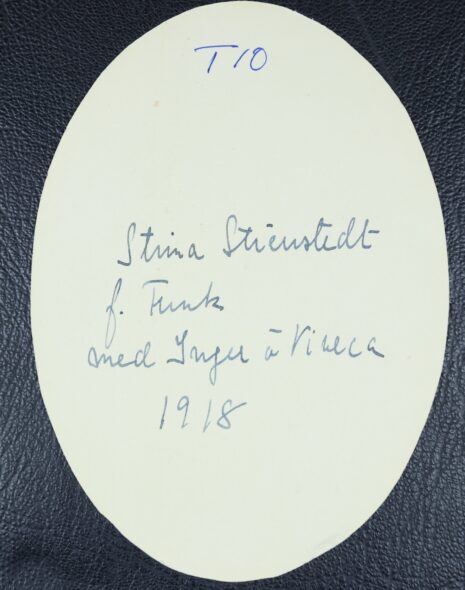 T10
Stina Stiernstedt
f. Funk
med Inger o Viveca
1918